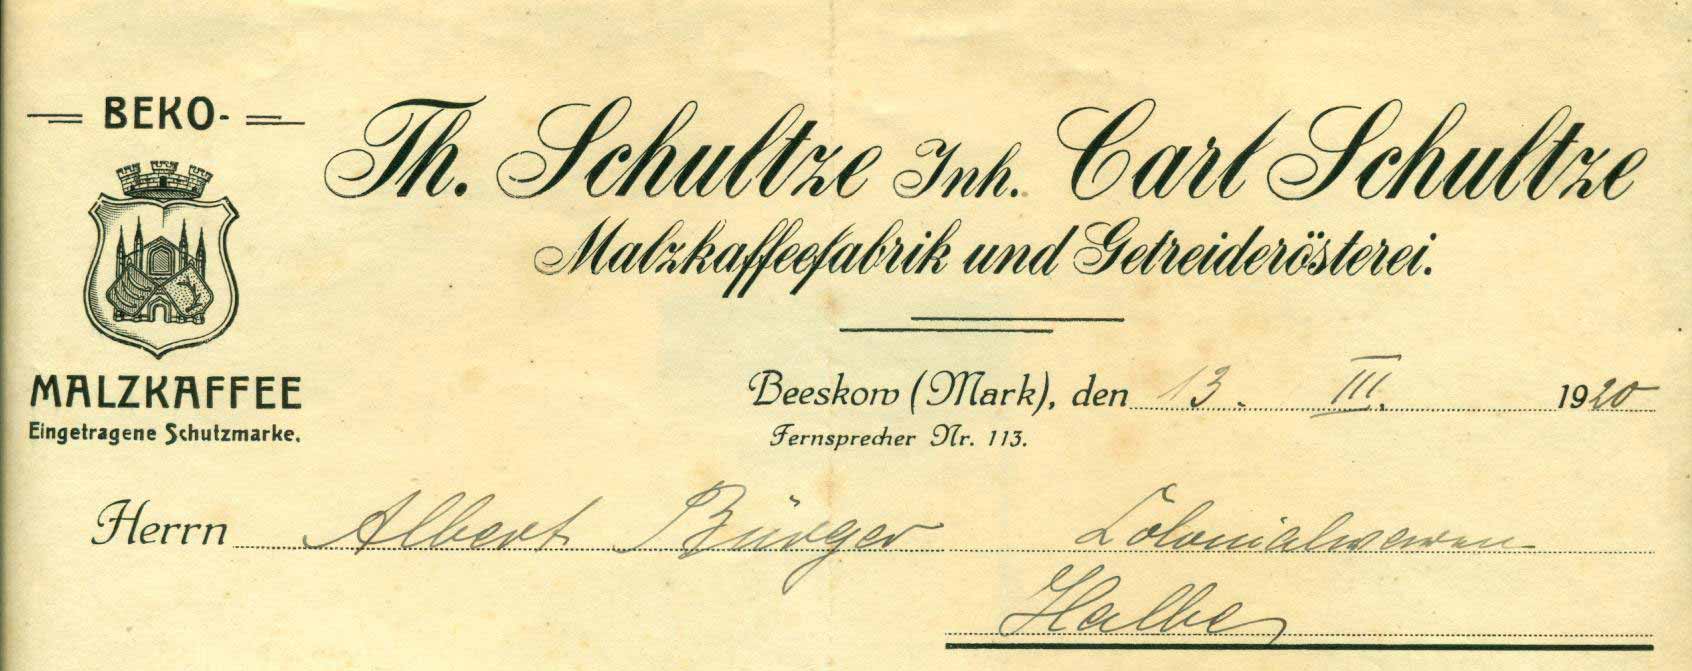 BEKO-
MALZKAFFEE
Eingetragene Schutzmarke.
Th. Schultze Inh. Carl Schultze
Malzkaffeefabrik und Getreiderösterei.
Beeskow (Mark), den 13. III. 1920
Fernsprecher Nr. 113.
Herrn Albert Bürger Colonialwaren
Halbe